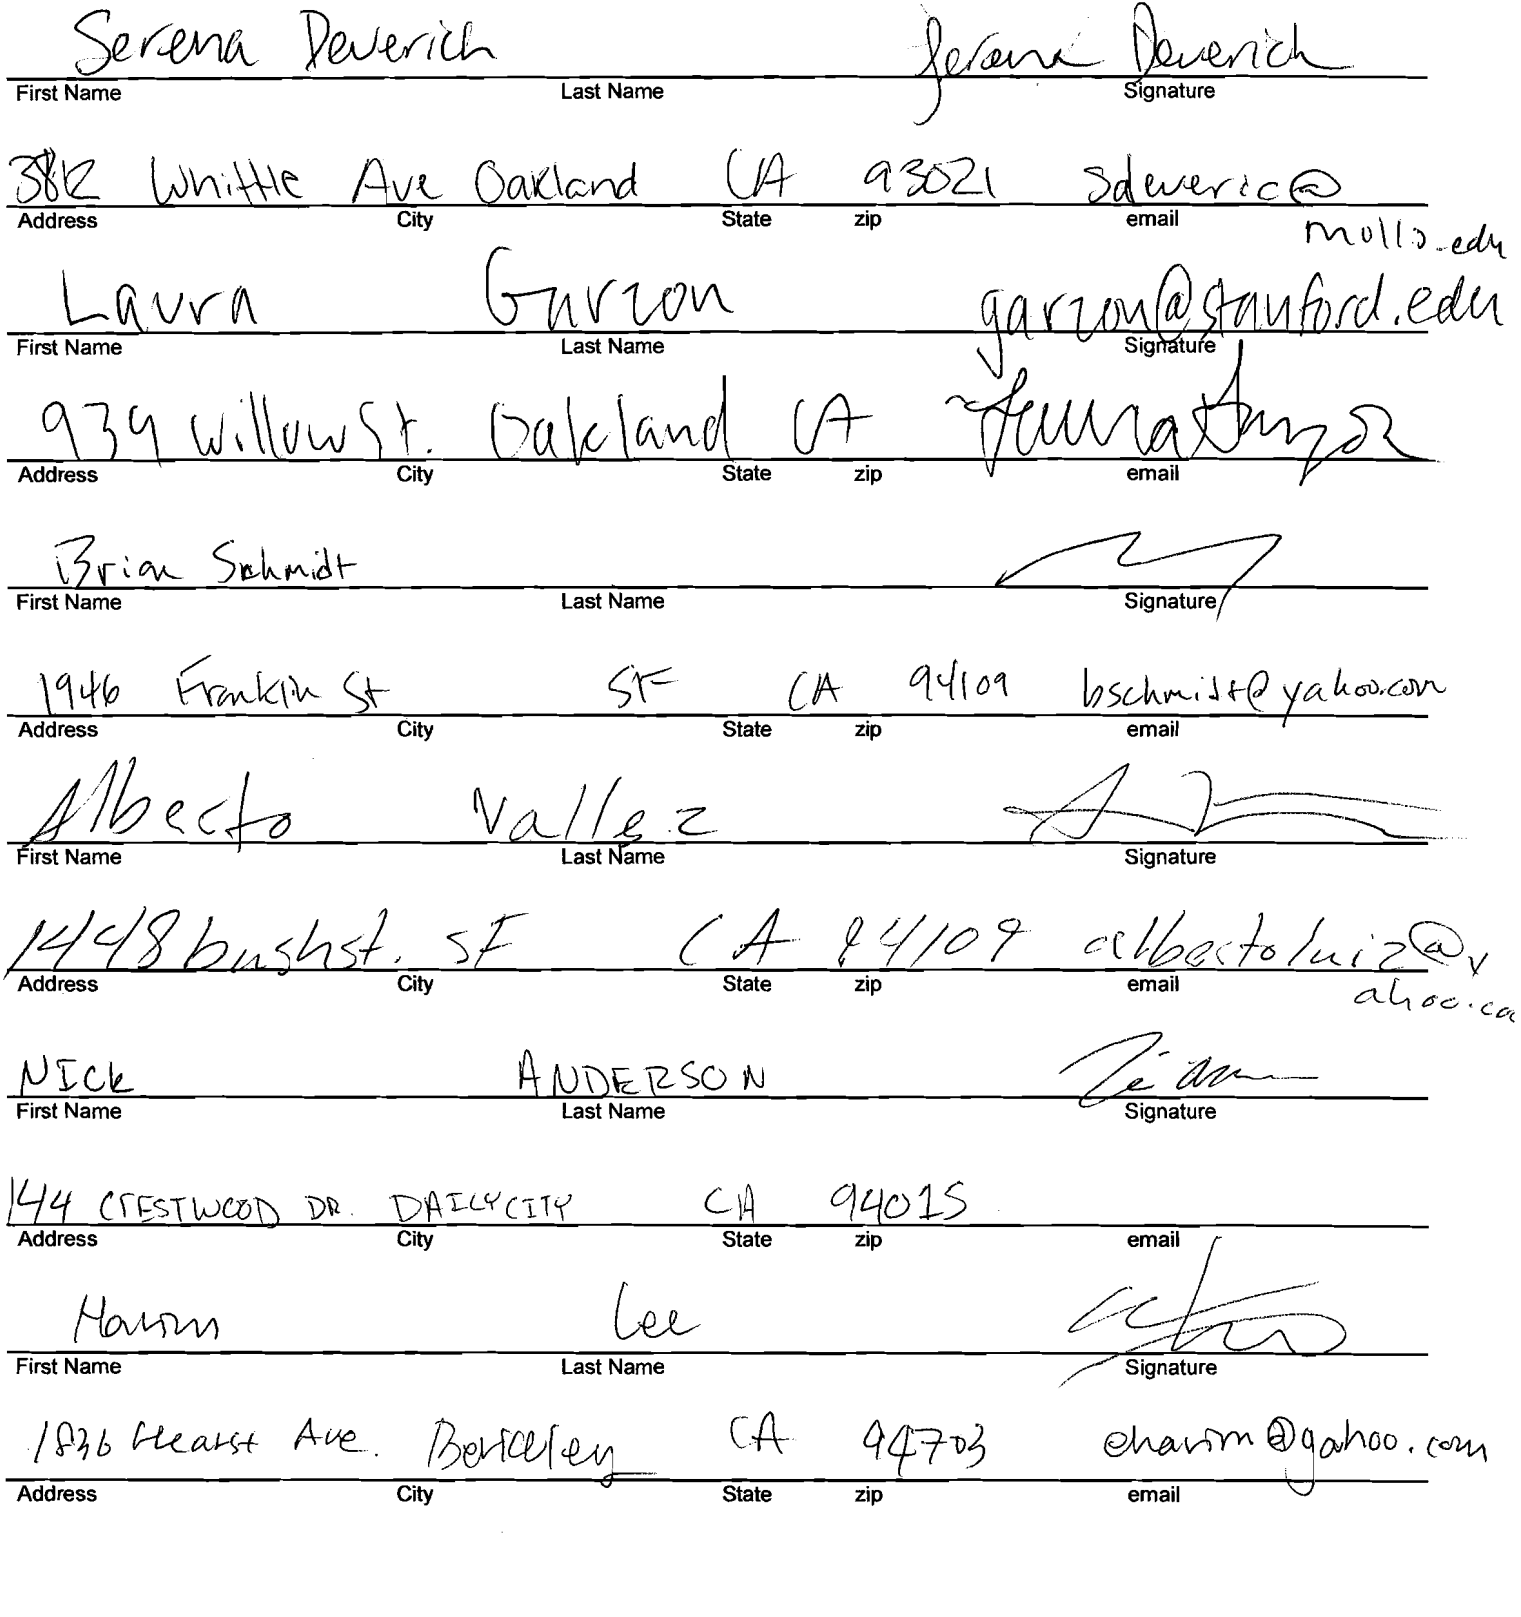 Serena Deverich Serena Deverich
First Name Last Name Signature
Whittle Ave Oakland CA 93021 sdeveric@
Address City State zip email
mills.edu
Laura Garzon garzon@stanford.edu
First Name Last Name Signature
939 Willow St. Oakland CA Laura Garzon
Address City State zip email
Brian Schmidt
First Name Last Name Signature
1946 Franklin St SF CA 94109 bschmidt@yahoo.com
Address City State zip email
Alberto Vallez
First Name Last Name Signature
1448 bush st. SF CA 94109 albertoluiz@y
Address City State zip email
ahoo.co
NICK ANDERSON
First Name Last Name Signature
144 CRESTWOOD DR. DAILY CITY CA 94015
Address City State zip email
Harim Lee
First Name Last Name Signature
1836 Hearst Ave. Berkeley CA 94703 eharim@yahoo.com
Address City State zip email